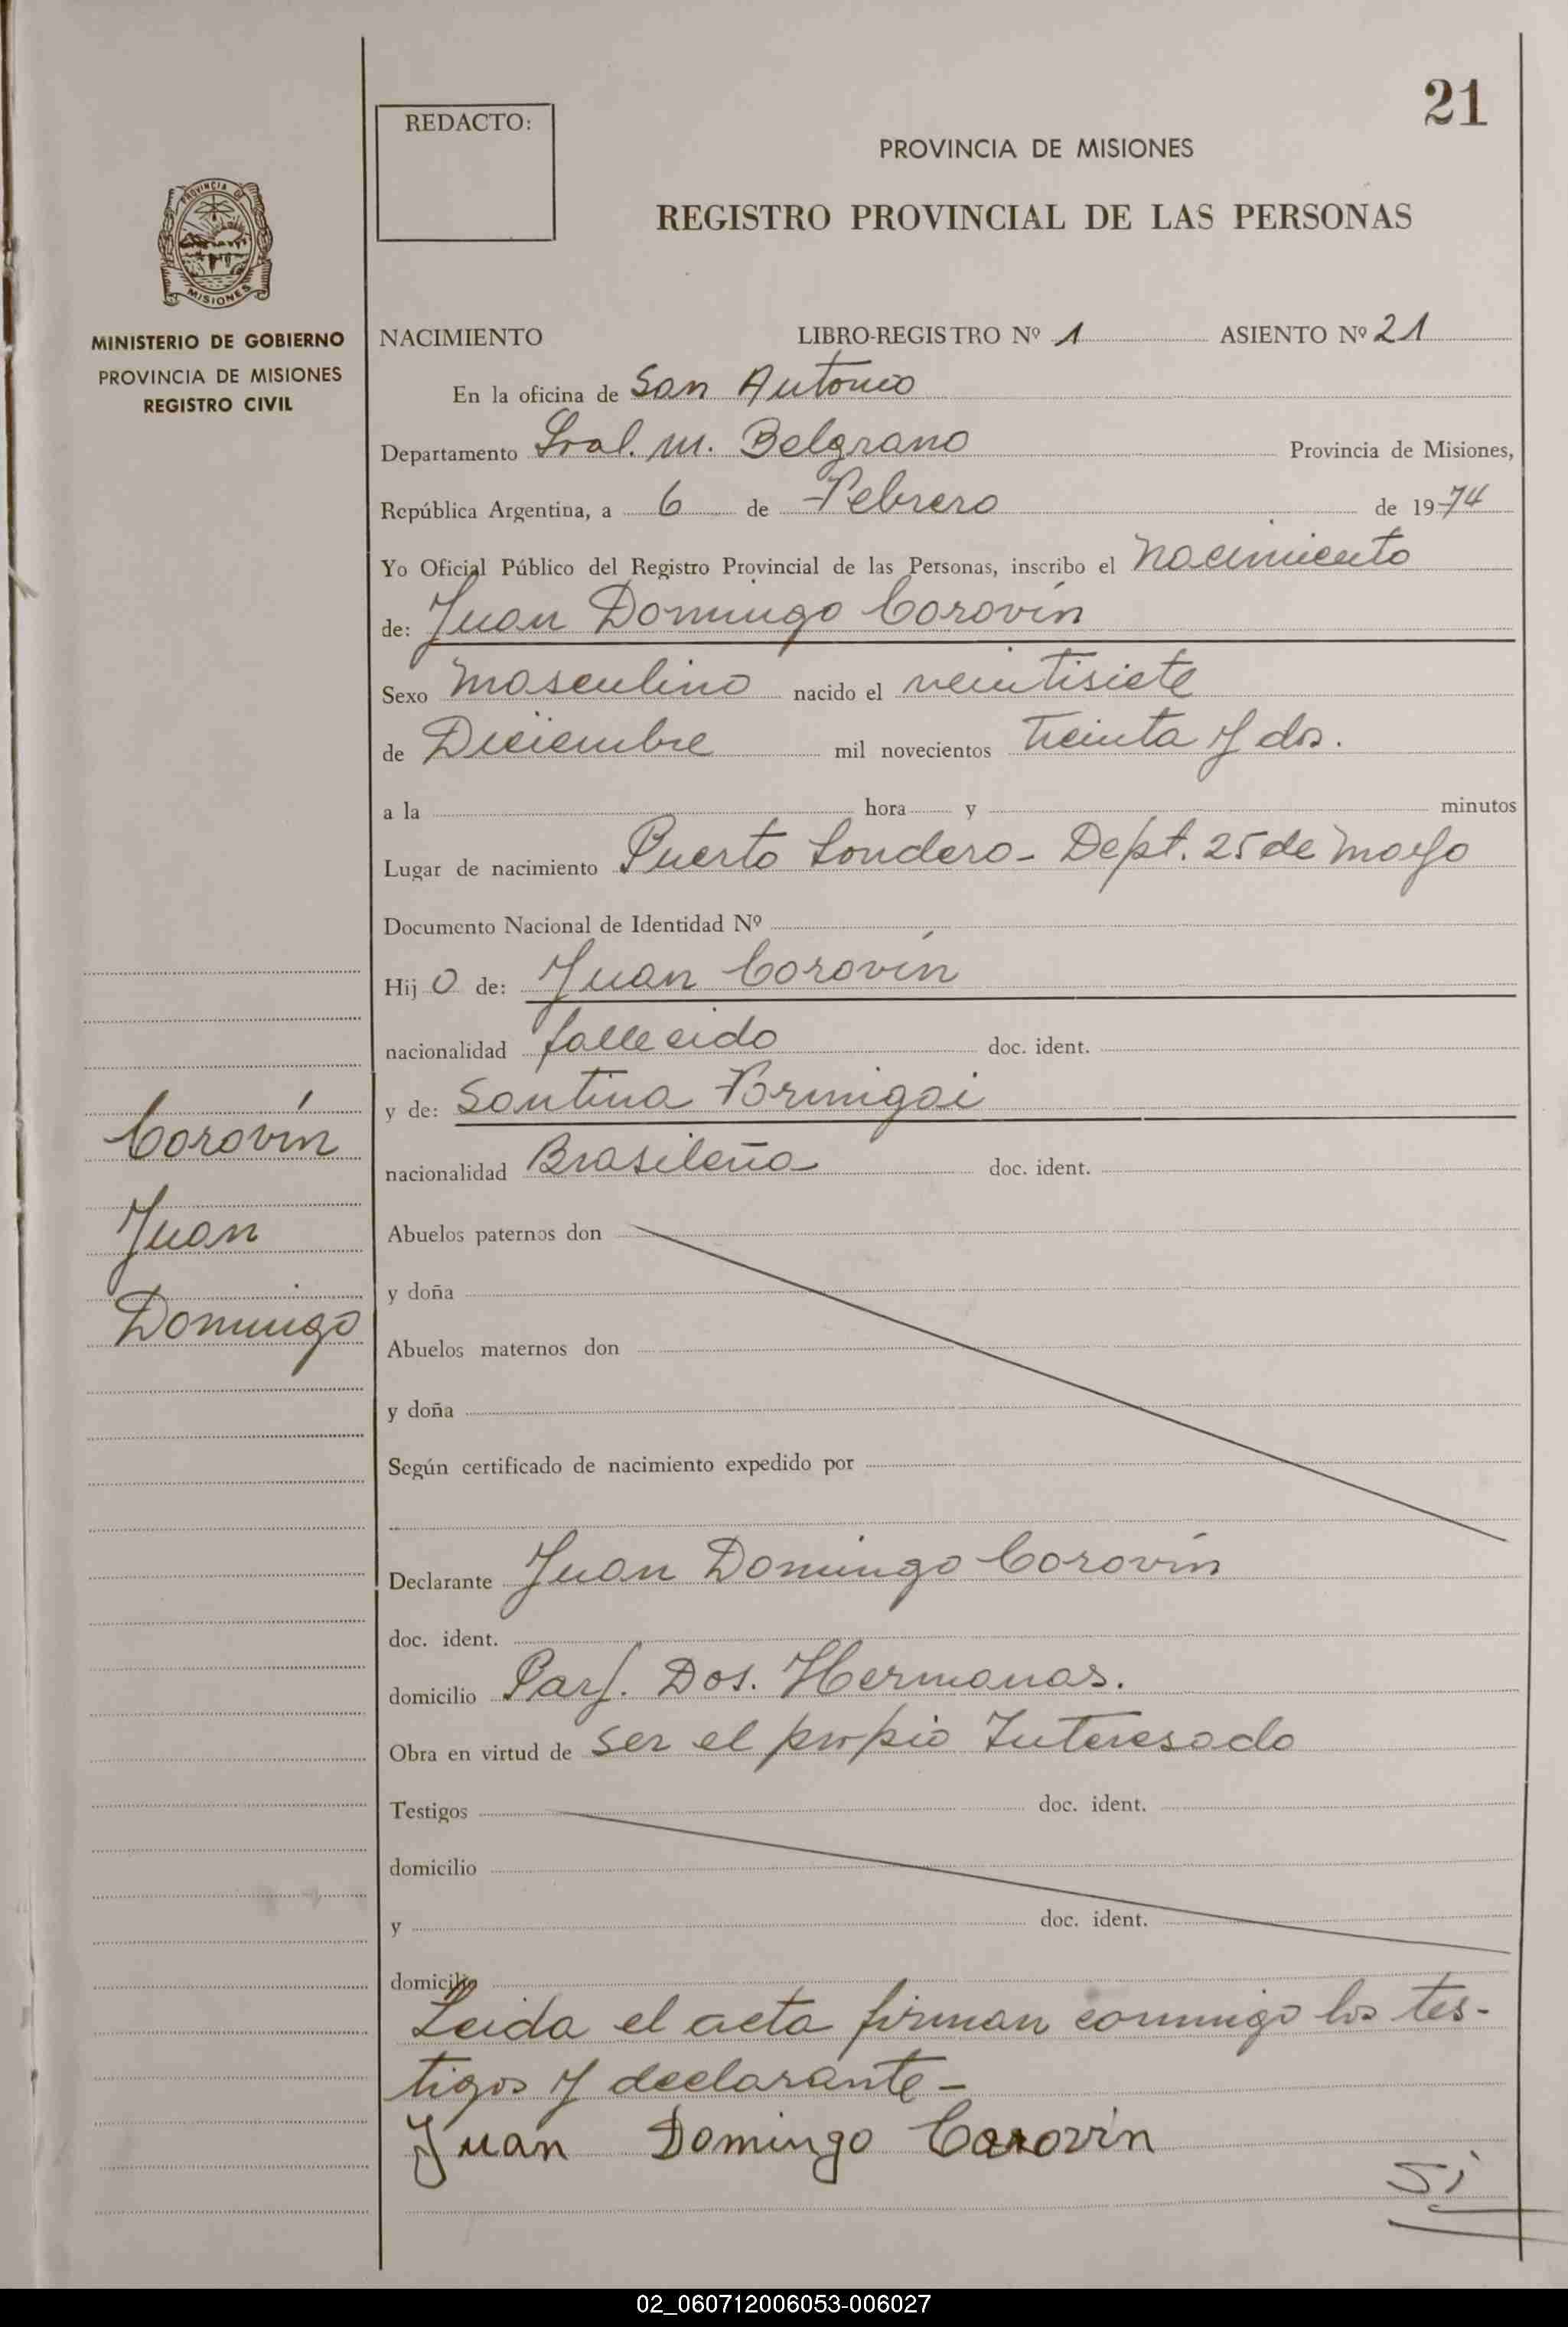 21
REDACTO:
PROVINCIA DE MISIONES
REGISTRO PROVINCIAL DE LAS PERSONAS
PROVINCIA DE
MISIONES
MINISTERIO DE GOBIERNO
PROVINCIA DE MISIONES
REGISTRO CIVIL
NACIMIENTO LIBRO-REGISTRO Nº 1 ASIENTO Nº 21
En la oficina de San Antonio
Departamento Gral. M. Belgrano Provincia de Misiones,
República Argentina, a 6 de Febrero de 1974
Yo Oficial Público del Registro Provincial de las Personas, inscribo el nacimiento
de: Juan Domingo Corovín
Sexo masculino nacido el veintisiete
de Diciembre mil novecientos treinta y dos.
a la hora y minutos
Lugar de nacimiento Puerto Londero - Dept. 25 de Mayo
Documento Nacional de Identidad Nº
Hij o de: Juan Corovín
nacionalidad fallecido doc. ident.
y de: Santina
nacionalidad Brasileña doc. ident.
Corovín
Juan
Domingo
Abuelos paternos don
y doña
Abuelos maternos don
y doña
Según certificado de nacimiento expedido por
Declarante Juan Domingo Corovín
doc. ident.
domicilio Parj. Dos. Hermanas.
Obra en virtud de ser el propio Interesado
Testigos doc. ident.
domicilio
y doc. ident.
domicilio
Leida el acta firman conmigo los tes-
tigos y declarante -
Juan Domingo Carovin
Si
02_060712006053-006027